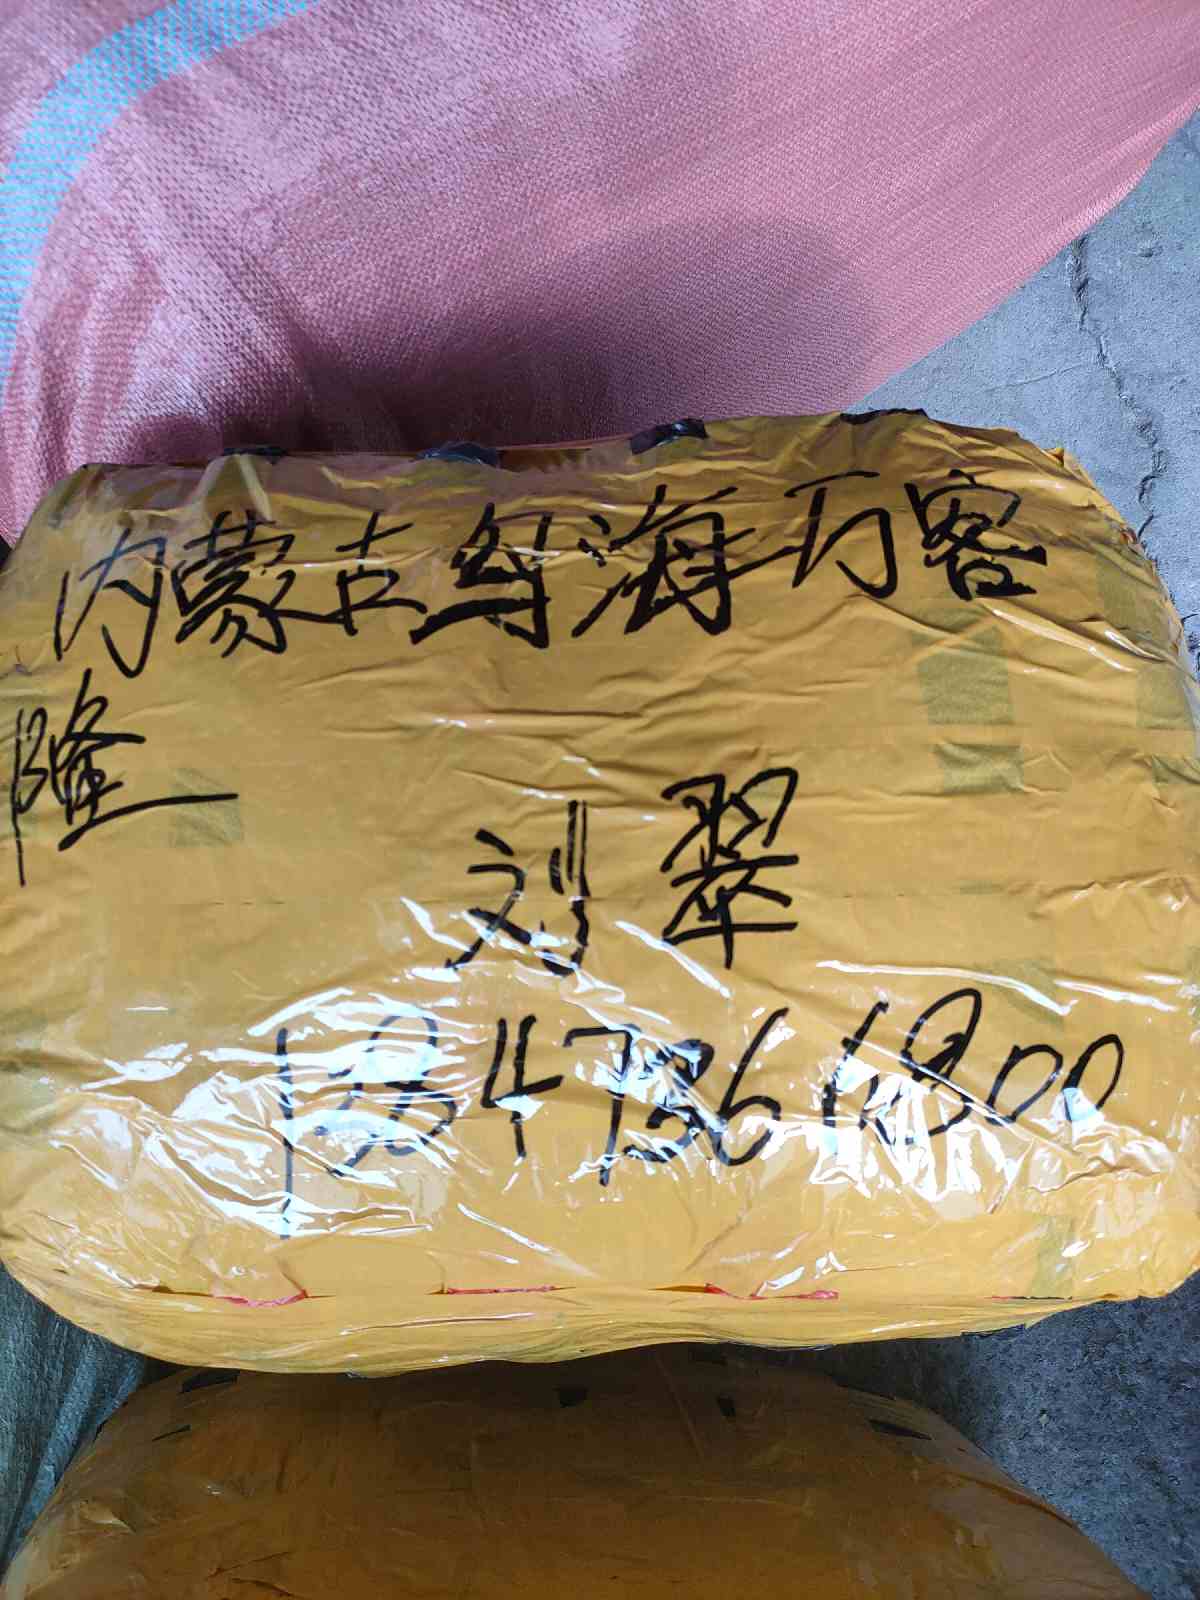 内蒙古乌海万客
隆
刘翠
13847366800